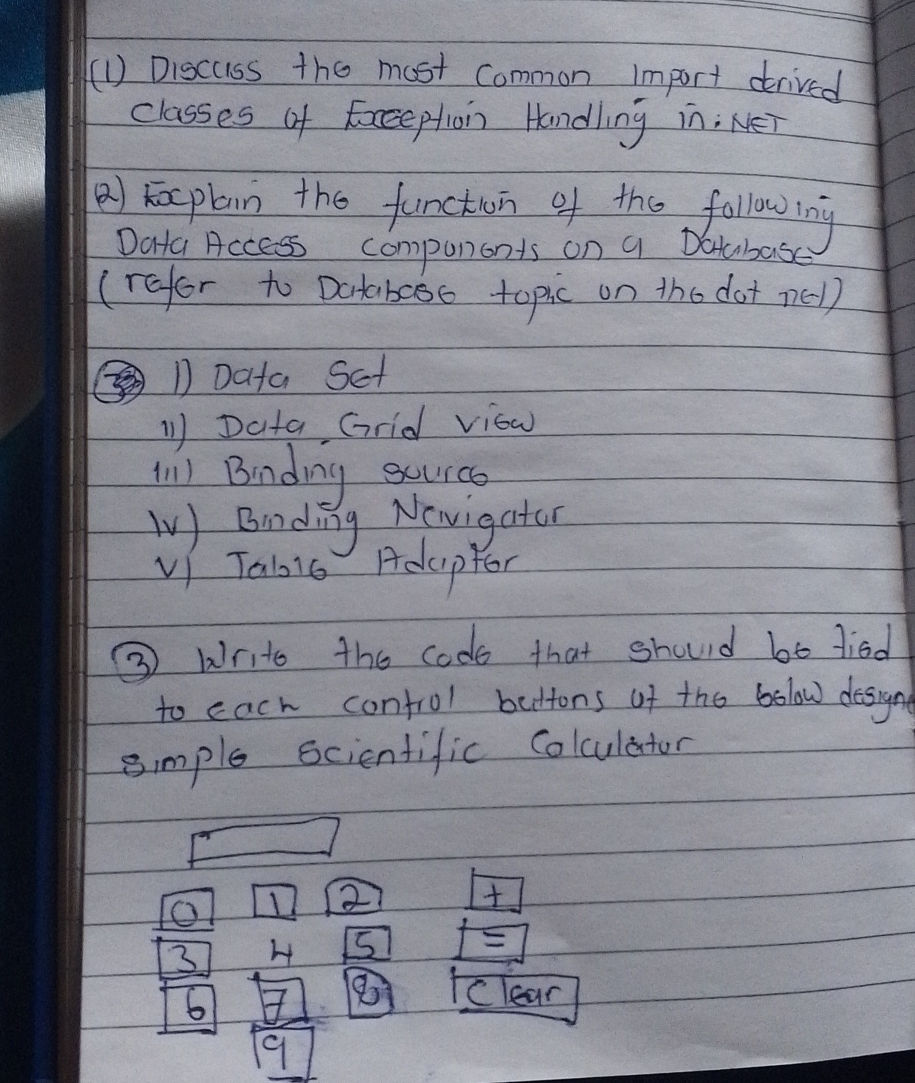 (1) Discuss the most common import derived
classes of Exception Handling in .NET
(2) Explain the function of the following
Data Access components on a Database
(refer to Database topic on the dot net)
1) Data Set
11) Data Grid view
111) Binding source
1v) Binding Navigator
v) Table Adapter
(3) Write the code that should be tied
to each control buttons of the below designed
simple scientific Calculator
0 1 2 +
3 4 5 =
6 7 8 Clear
9